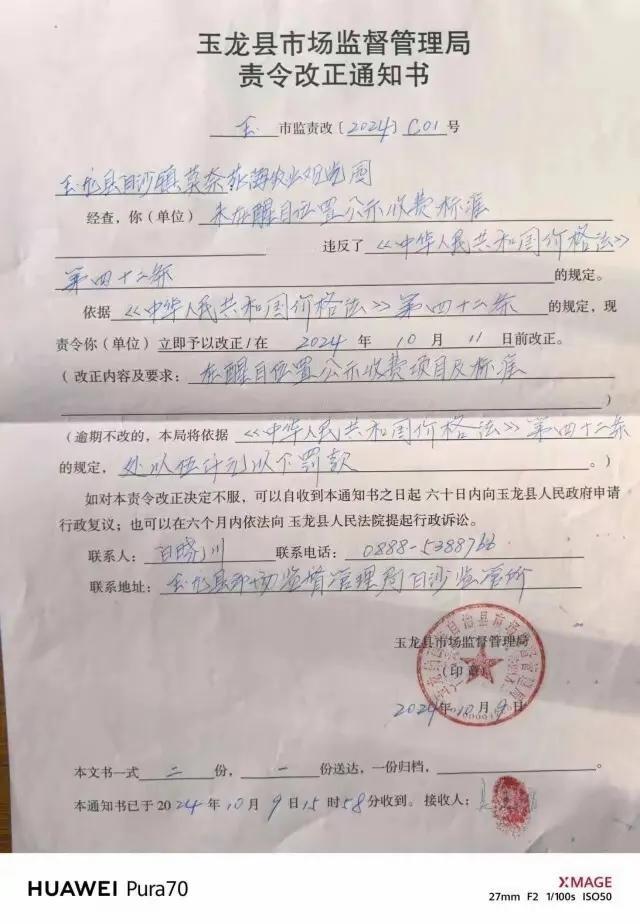 玉龙县市场监督管理局
责令改正通知书
玉 市监责改〔2024〕C01号
玉龙县白沙镇莫奈花海农业观光园
经查，你（单位）未在醒目位置公示收费标准
违反了《中华人民共和国价格法》
第四十二条的规定。
依据《中华人民共和国价格法》第四十二条的规定，现
责令你（单位）立即予以改正/在 2024 年 10 月 11 日前改正。
（改正内容及要求：在醒目位置公示收费项目及标准
）
（逾期不改的，本局将依据《中华人民共和国价格法》第四十二条
的规定，处以伍仟元以下罚款。）
如对本责令改正决定不服，可以自收到本通知书之日起 六十日内向玉龙县人民政府申请
行政复议；也可以在六个月内依法向 玉龙县人民法院提起行政诉讼。
联系人：白晓川 联系电话：0888-5388766
联系地址：玉龙县市场监督管理局白沙监管所
玉龙县市场监督管理局
（印章）
2024年10月9日
本文书一式 二 份，一 份送达，一份归档，。
本通知书已于2024年10月9日15时58分收到。接收人：
HUAWEI Pura70
XMAGE
27mm F2 1/100s ISO50